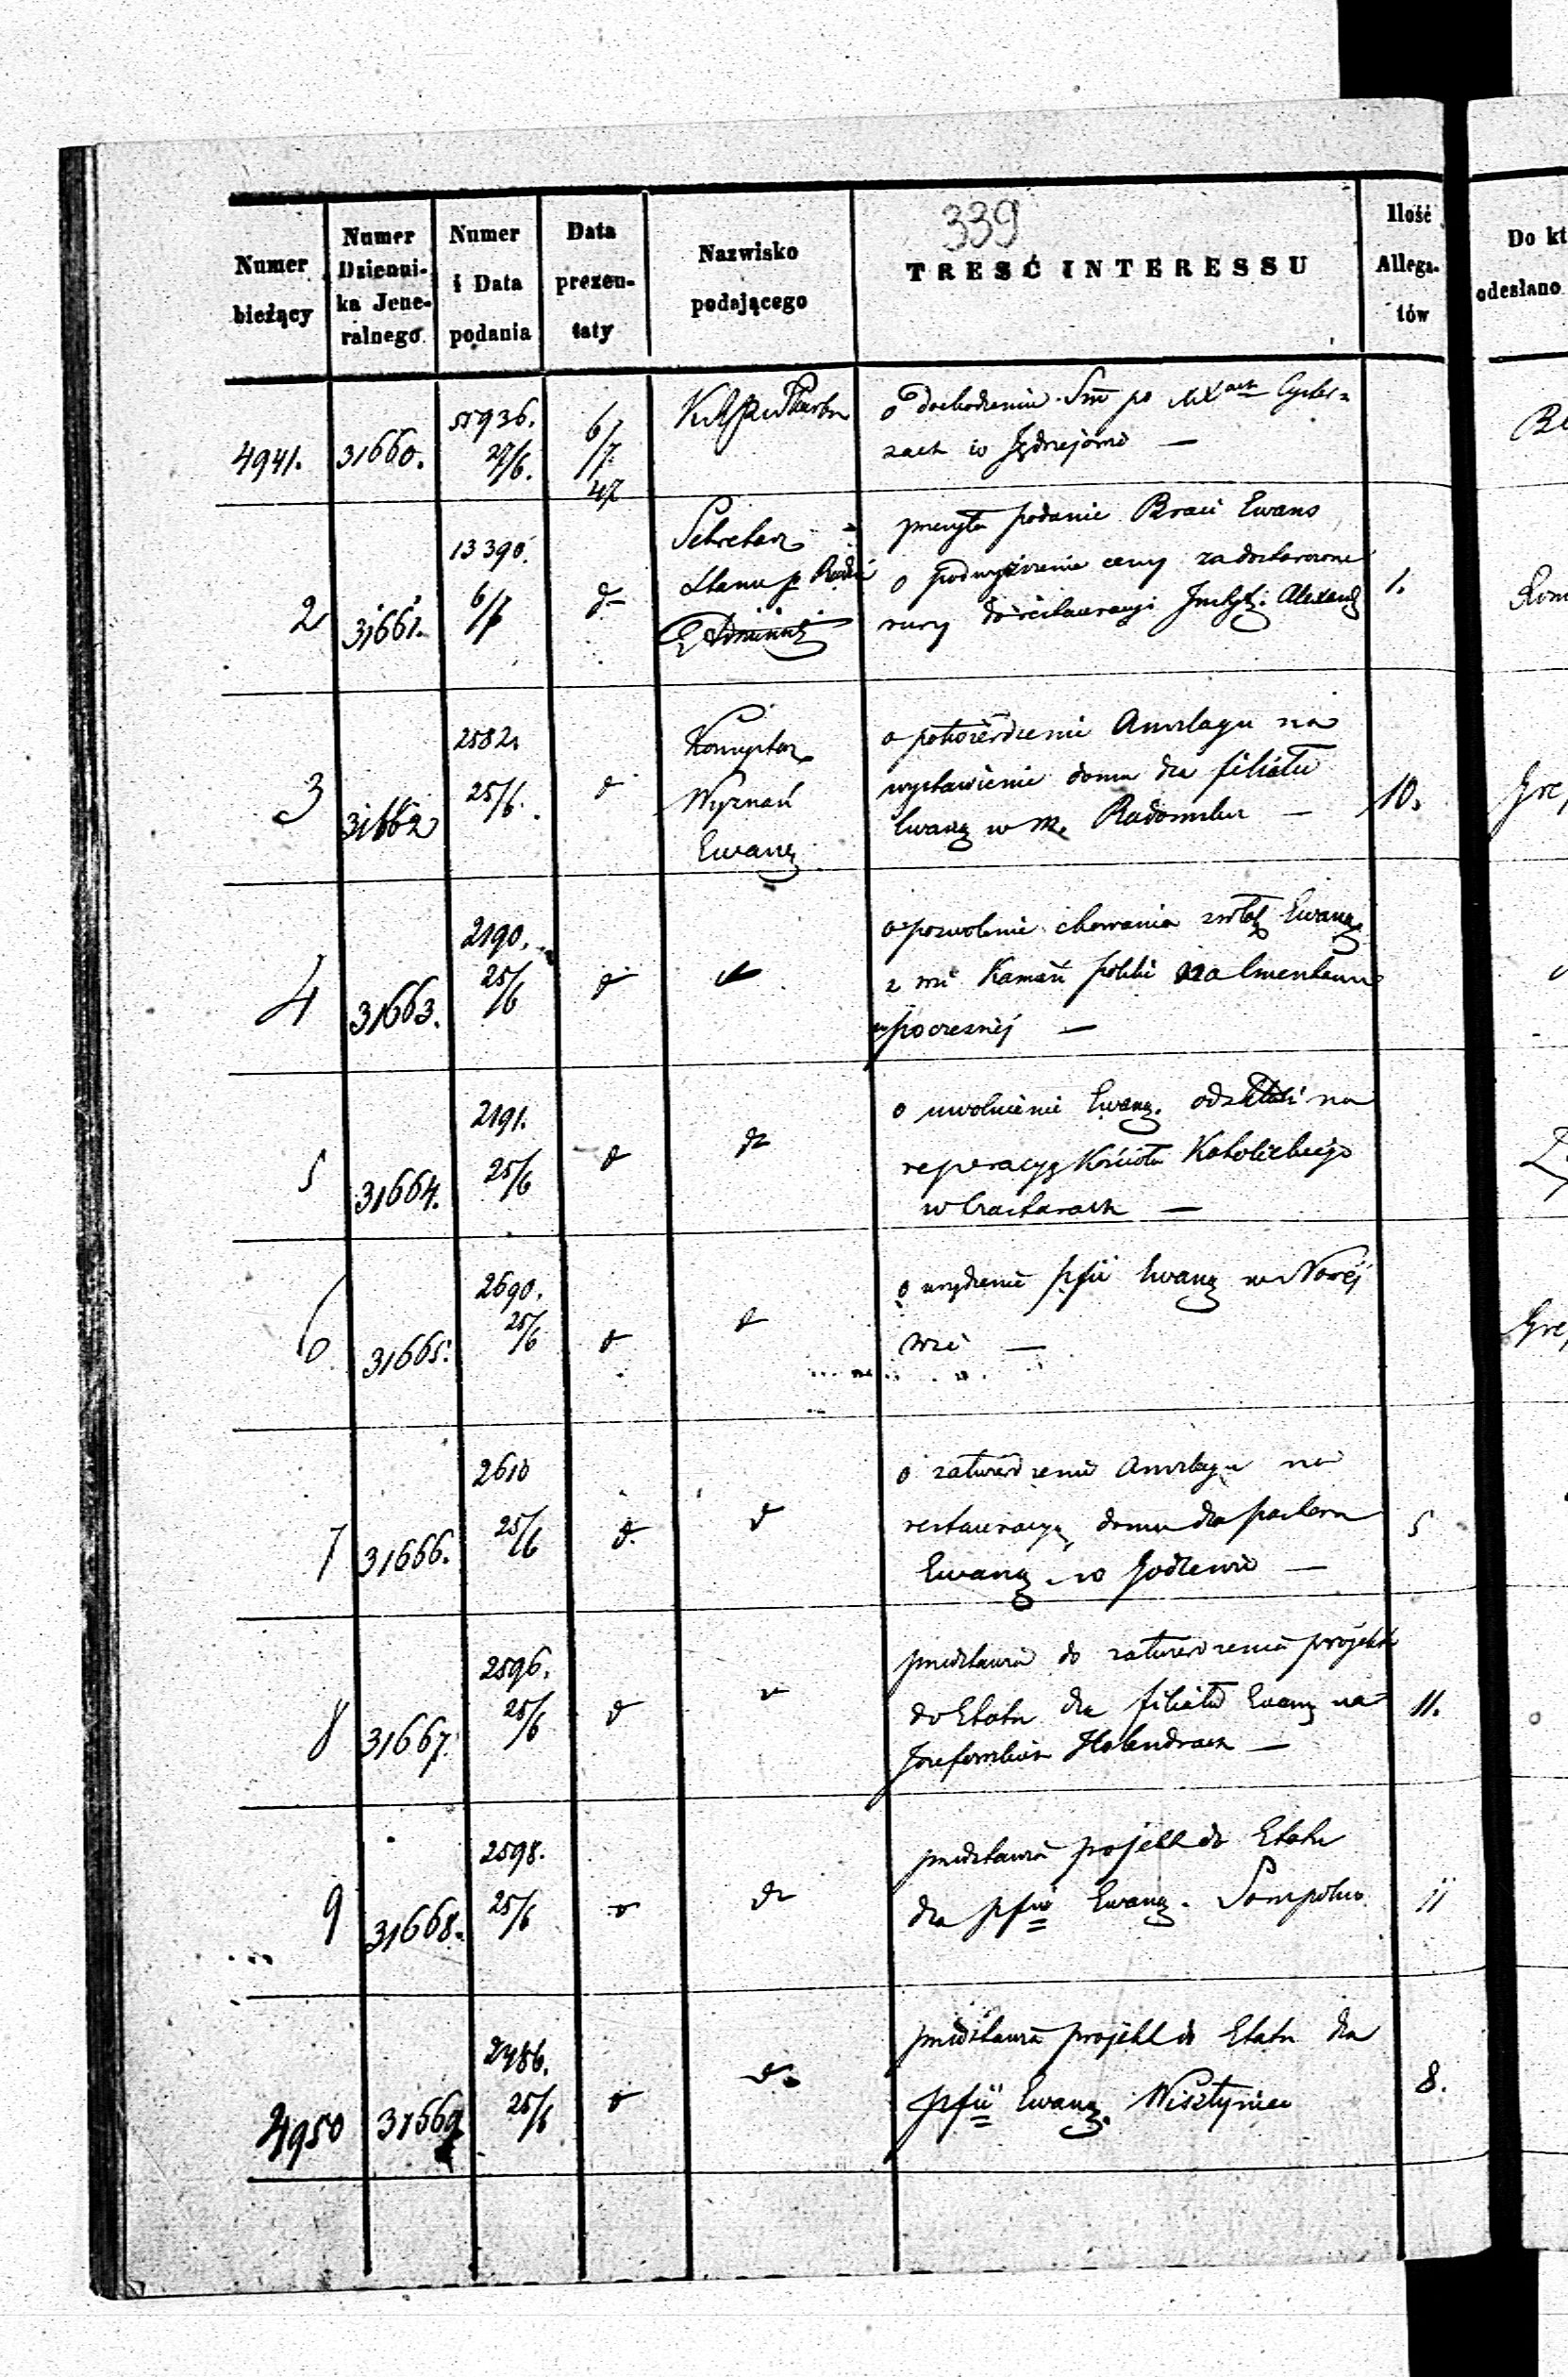 339
Numer bieżący
Numer Dziennika Jeneralnego
Numer i Data podania
Data prezentaty
Nazwisko podającego
TREŚĆ INTERESSU
Ilość Allegatów
Do kt
odesłano
4941. 31660. 55936. 27/6. 6/7 47
o dochodzenie po XX Cyster-
zach w Jędrzejowie —
2 31661. 13390. 6/7 d 1.
Sekretarz
Stanu p Radzie
przesyła podanie Braci Ewans
o podwyższenie ceny za dostarczone
rury do restauracyi Instyt. Alexand
3 31662 2582 25/6. d 10.
Konsystorz
Wyznań
Ewang
o potwierdzenie Anszlagu na
wystawienie domu dla filiału
Ewang w m. Radomsku —
4 31663. 2190. 25/6 d
o pozwolenie chowania zwłok Ewang
z wsi Kamień polski na Cmentarzu
—
5 31664. 2191. 25/6 d d
o uwolnienie Ewang. od składki na
reperacyę Kościoła Katolickiego
w —
6 31665. 2690. 25/6 d d
o urządzenie pfii Ewang w Nowéj
wsi —
7 31666. 2610 25/6 d. d 5
o zatwierdzenie Anszlagu na
restauracyę domu dla pastora
Ewang w Godlewie —
8 31667. 2596. 25/6 d d 11.
przedstawia do zatwierdzenia projekt
do Etatu dla filiału Ewang na
Józefowskich Holendrach —
9 31668. 2598. 25/6 d d 11
przedstawia projekt do Etatu
dla pfii Ewang. Sompolno
4950 31669 2486. 25/6 d d 8.
przedstawia projekt do Etatu dla
pfii Ewang. Wisztyniec